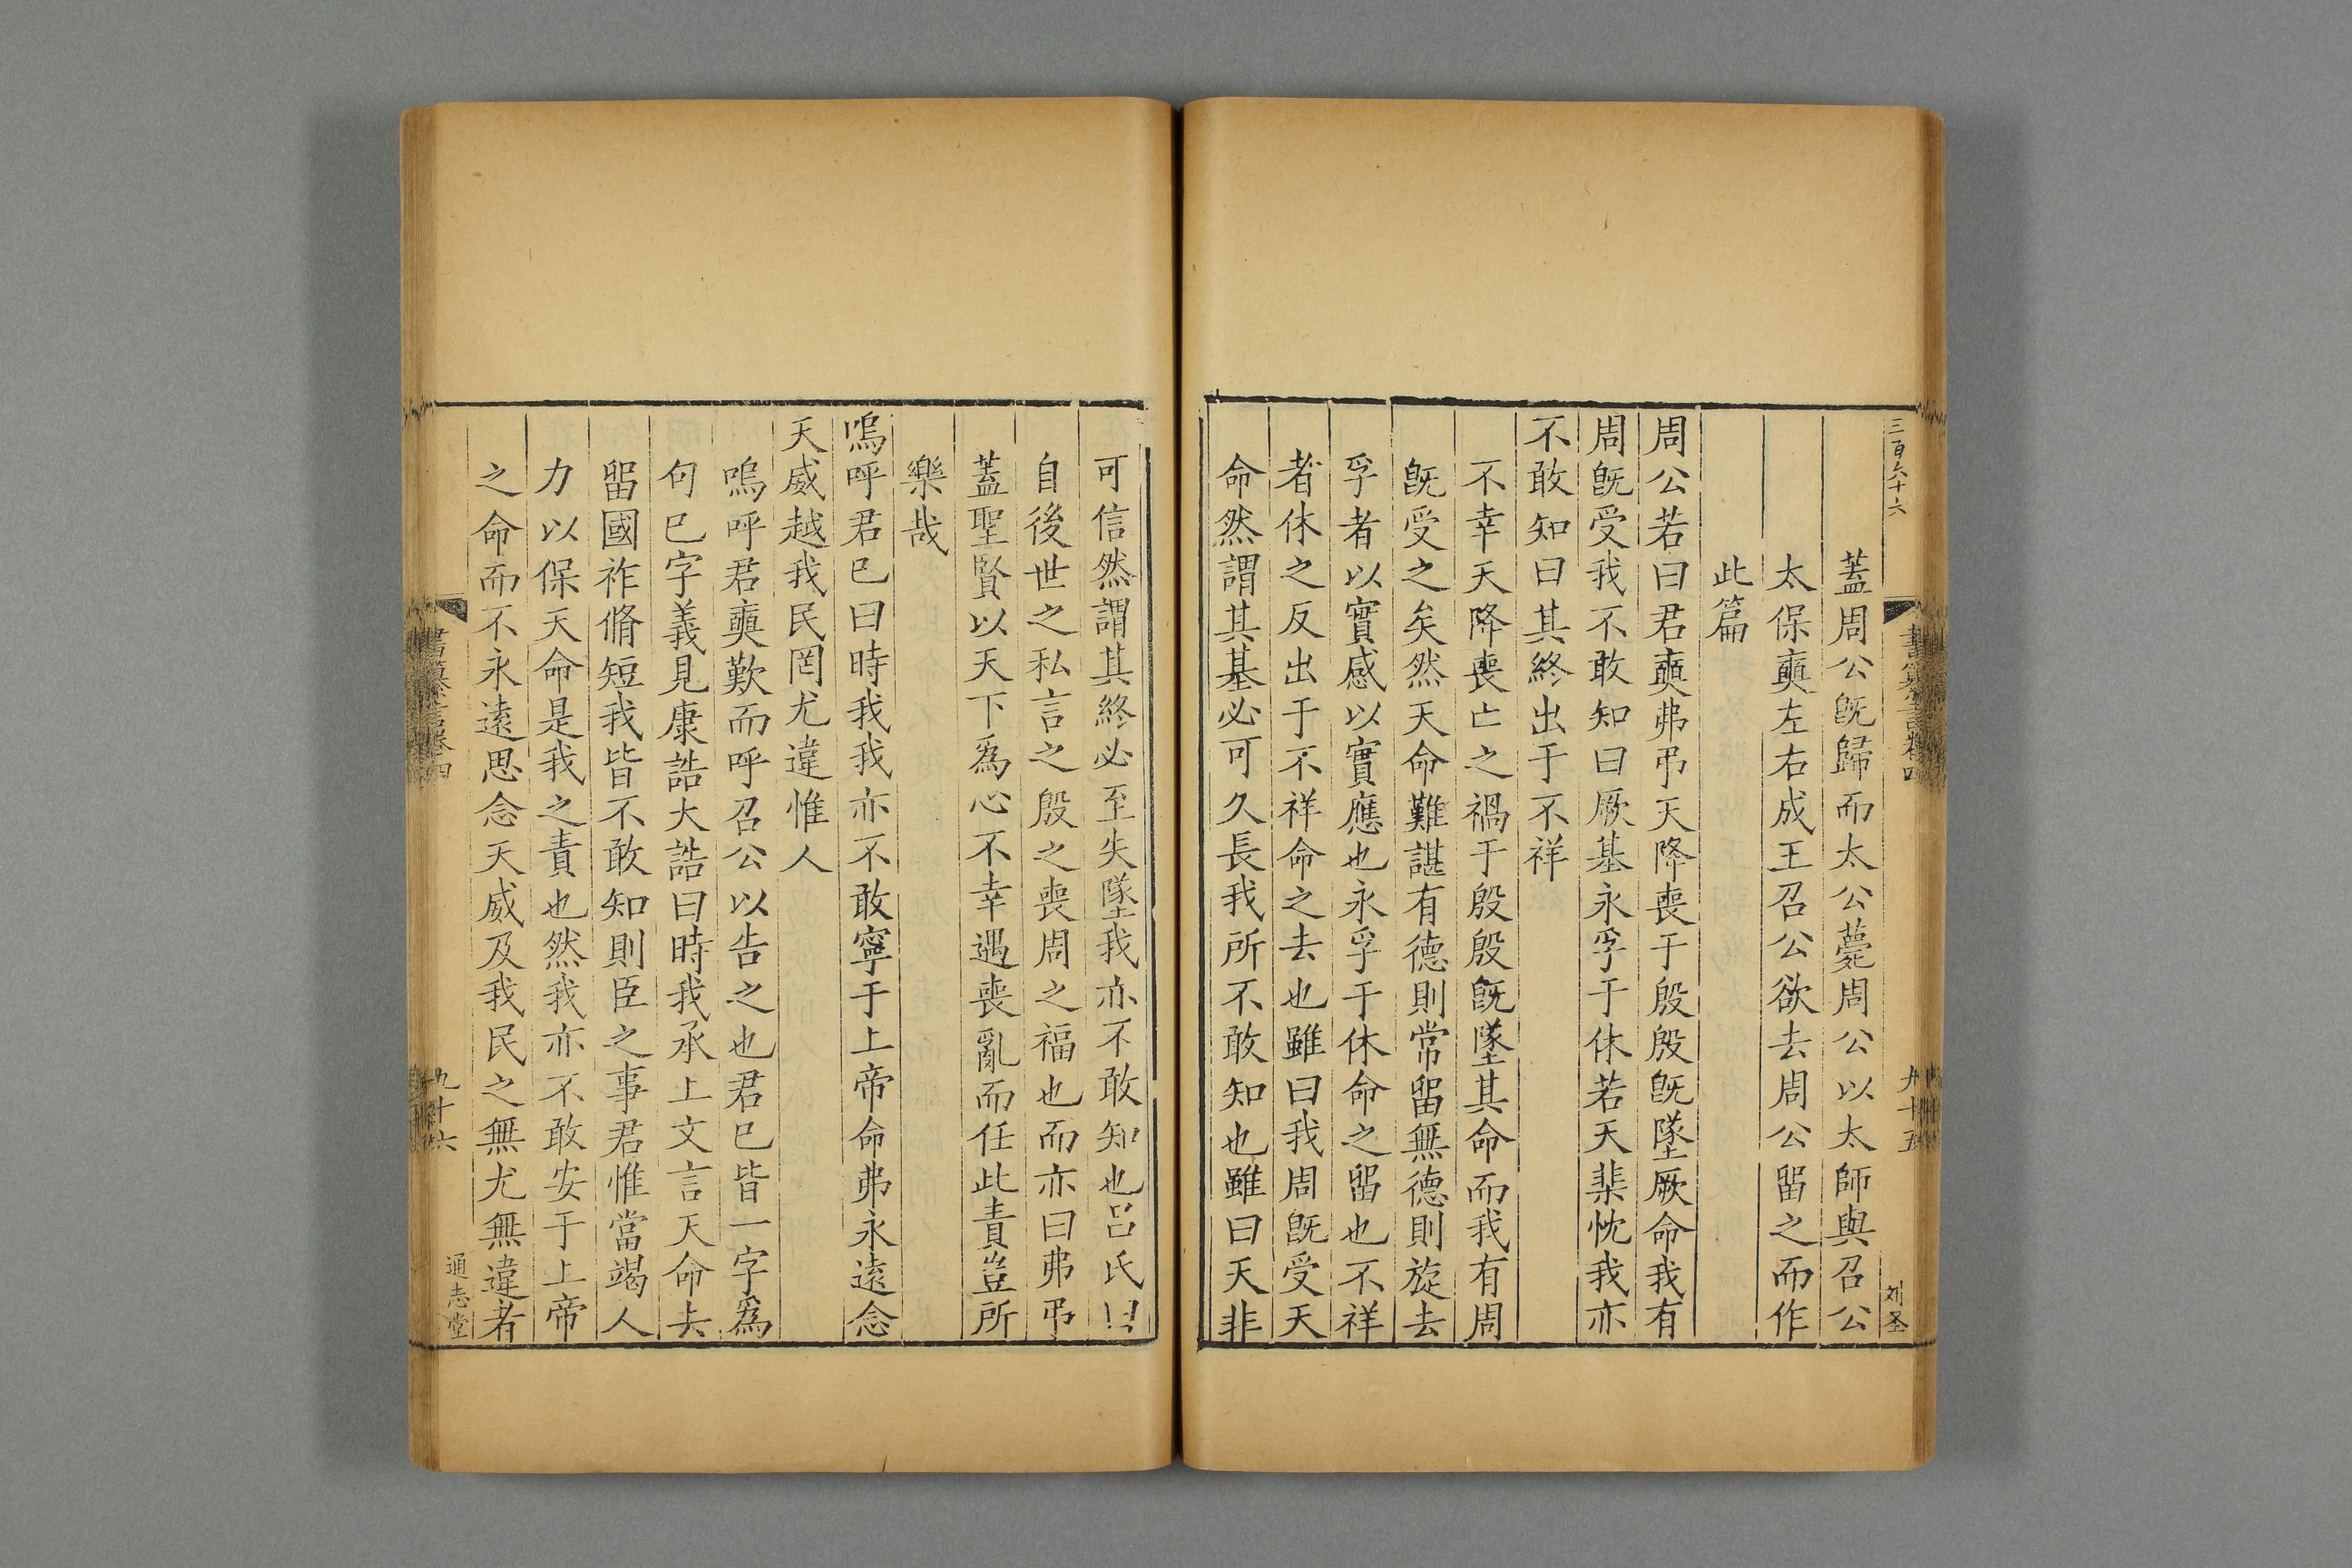 三百六十六
書纂言卷四
九十五
刘圣
蓋周公旣歸而太公薨周公以太師與召公
太保奭左右成王召公欲去周公畱之而作
此篇
周公若曰君奭弗弔天降喪于殷殷旣墜厥命我有
周旣受我不敢知曰厥基永孚于休若天棐忱我亦
不敢知曰其終出于不祥
不幸天降喪亡之禍于殷殷旣墜其命而我有周
旣受之矣然天命難諶有德則常畱無德則旋去
孚者以實感以實應也永孚于休命之畱也不祥
者休之反出于不祥命之去也雖曰我周旣受天
命然謂其基必可久長我所不敢知也雖曰天非
可信然謂其終必至失墜我亦不敢知也呂氏曰
自後世之私言之殷之喪周之福也而亦曰弗弔
蓋聖賢以天下爲心不幸遇喪亂而任此責豈所
樂哉
嗚呼君已曰時我我亦不敢寧于上帝命弗永遠念
天威越我民罔尤違惟人
嗚呼君奭歎而呼召公以告之也君已皆一字爲
句已字義見康誥大誥曰時我承上文言天命去
畱國祚脩短我皆不敢知則臣之事君惟當竭人
力以保天命是我之責也然我亦不敢安于上帝
之命而不永遠思念天威及我民之無尤無違者
書纂言卷四
九十六
通志堂